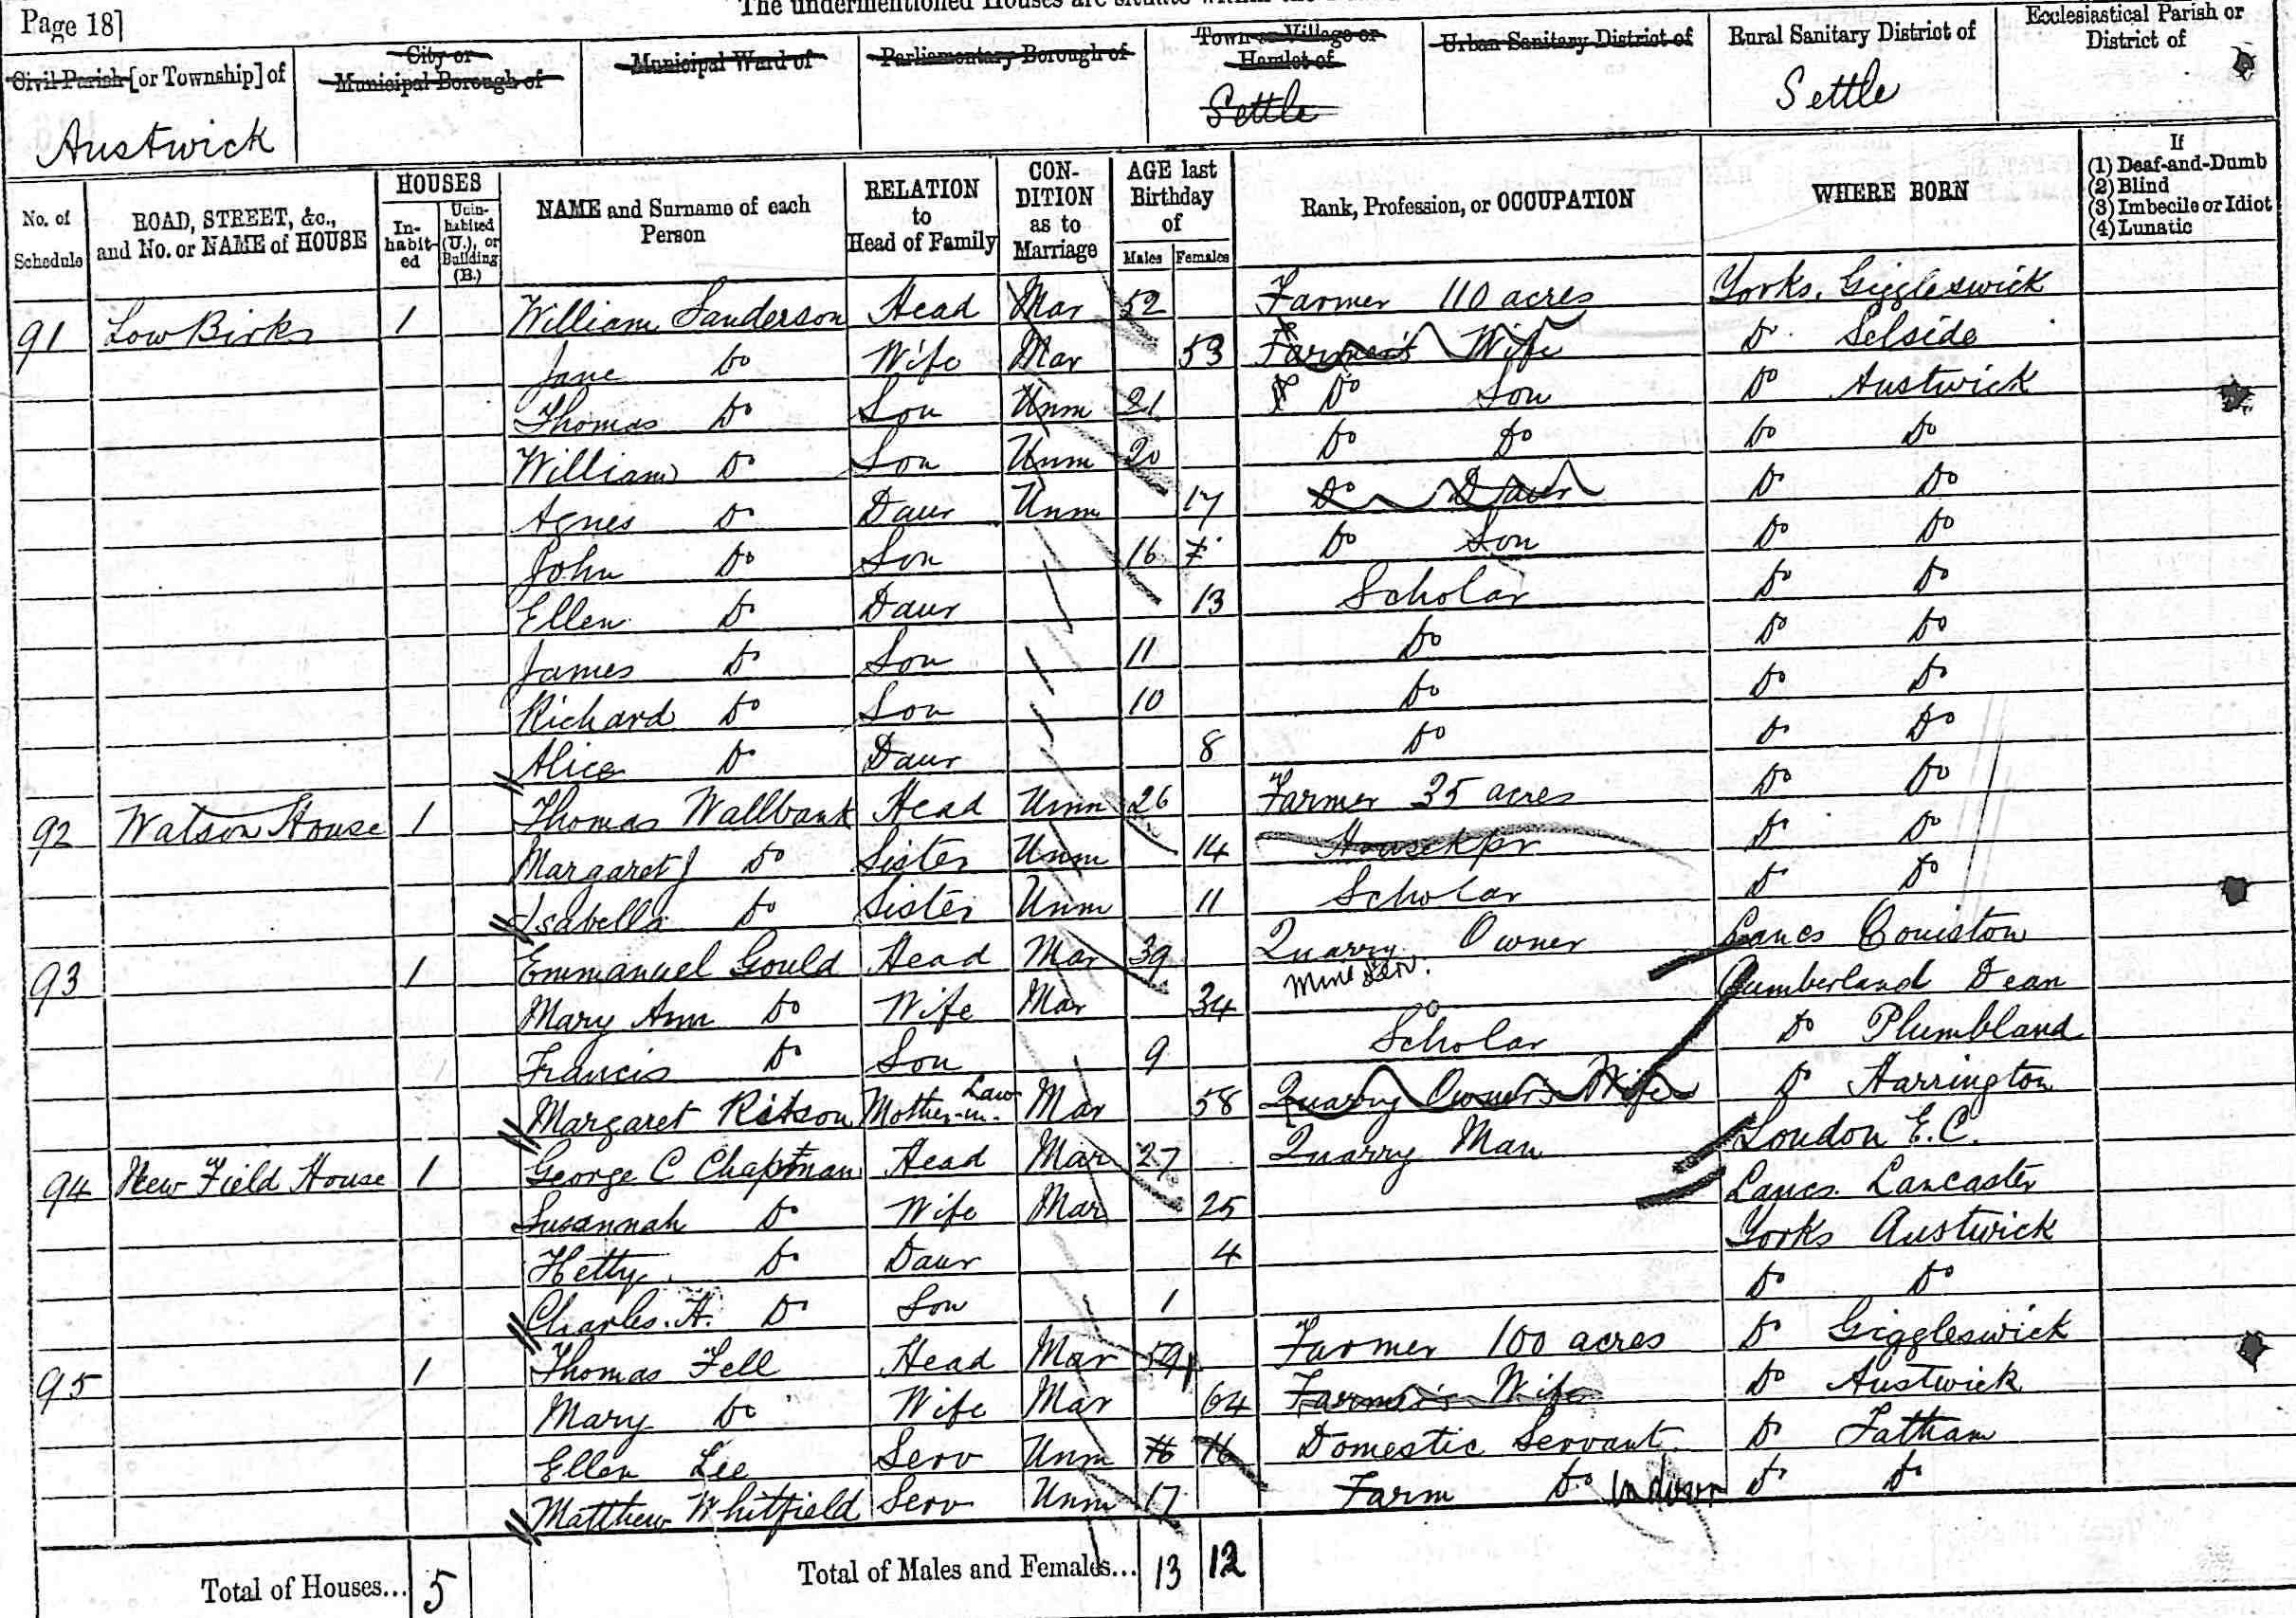 The undermentioned Houses are situate within the
Page 18]
Civil Parish [or Township] of
City or Municipal Borough of
Municipal Ward of
Parliamentary Borough of
Town or Village or Hamlet of
Urban Sanitary District of
Rural Sanitary District of
Ecclesiastical Parish or District of
Austwick Settle Settle
No. of Schedule
ROAD, STREET, &c., and No. or NAME of HOUSE
HOUSES
In-habit-ed
Unin-habited (U.), or Building (B.)
NAME and Surname of each Person
RELATION to Head of Family
CON-DITION as to Marriage
AGE last Birthday of
Males Females
Rank, Profession, or OCCUPATION
WHERE BORN
If
(1) Deaf-and-Dumb
(2) Blind
(3) Imbecile or Idiot
(4) Lunatic
91 Low Birks 1 William Sanderson Head Mar 52 Farmer 110 acres Yorks. Giggleswick
Jane Do Wife Mar 53 Farmer's Wife Do Selside
Thomas Do Son Unm 21 Do Son Do Austwick
William Do Son Unm 20 Do Do Do Do
Agnes Do Daur Unm 17 Do Daur Do Do
John Do Son 16 Do Son Do Do
Ellen Do Daur 13 Scholar Do Do
James Do Son 11 Do Do Do
Richard Do Son 10 Do Do Do
Alice Do Daur 8 Do Do Do
92 Watson House 1 Thomas Wallbank Head Unm 26 Farmer 35 acres Do Do
Margaret J Do Sister Unm 14 Housekpr Do Do
Isabella Do Sister Unm 11 Scholar Do Do
93 1 Emmanuel Gould Head Mar 39 Quarry Owner Lancs Coniston
Mary Ann Do Wife Mar 34 Cumberland Dean
Francis Do Son 9 Scholar Do Plumbland
Margaret Ritson Mother-in-Law Mar 58 Quarry Owner's Wife Do Harrington
94 New Field House 1 George C Chapman Head Mar 27 Quarry Man London E.C.
Susannah Do Wife Mar 25 Lancs. Lancaster
Hetty Do Daur 4 Yorks Austwick
Charles. H. Do Son 1 Do Do
95 1 Thomas Fell Head Mar 59 Farmer 100 acres Do Giggleswick
Mary Do Wife Mar 64 Farmer's Wife Do Austwick
Ellen Lee Serv Unm 16 16 Domestic Servant Do Tatham
Matthew Whitfield Serv Unm 17 Farm Do Indoor Do Do
Total of Houses... 5 Total of Males and Females... 13 12